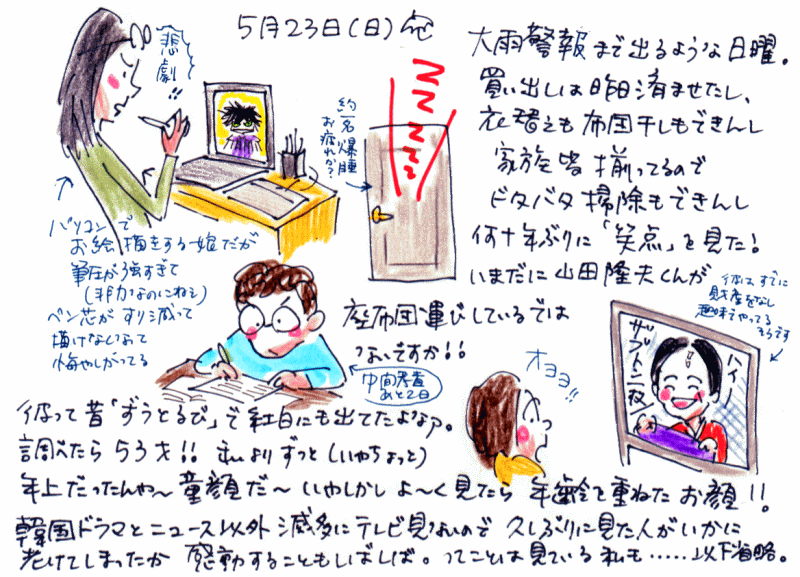 5月23日(日)
悲劇!!
約一名爆睡
お疲れか?
ZZZZZZ
大雨警報まで出るような日曜。
買い出しは昨日済ませたし、
衣替えも布団干しもできんし
家族皆揃ってるので
ドタバタ掃除もできんし
何十年ぶりに「笑点」を見た!
いまだに山田隆夫くんが
座布団運びしているでは
ないですか!!
パソコンで
お絵描きをする娘だが
筆圧が強すぎて
(非力なのにねぇ)
ペン芯がすり減って
描けないって
悔やしがってる
中間考査
あと2日
オヨヨ!!
彼はすでに
財産をなし
趣味でやってる
そうです
ハイ
ザブトン一枚
彼って昔「ずうとるび」で紅白にも出てたよなァ。
調べたら53才!!私よりずっと(いやちょっと)
年上だったんや〜童顔だ〜いやしかしよ〜く見たら年齢を重ねたお顔!!
韓国ドラマとニュース以外滅多にテレビ見ないので久しぶりに見た人がいかに
老けてしまったか感動することもしばしば。ってことは見ている私も……以下省略。